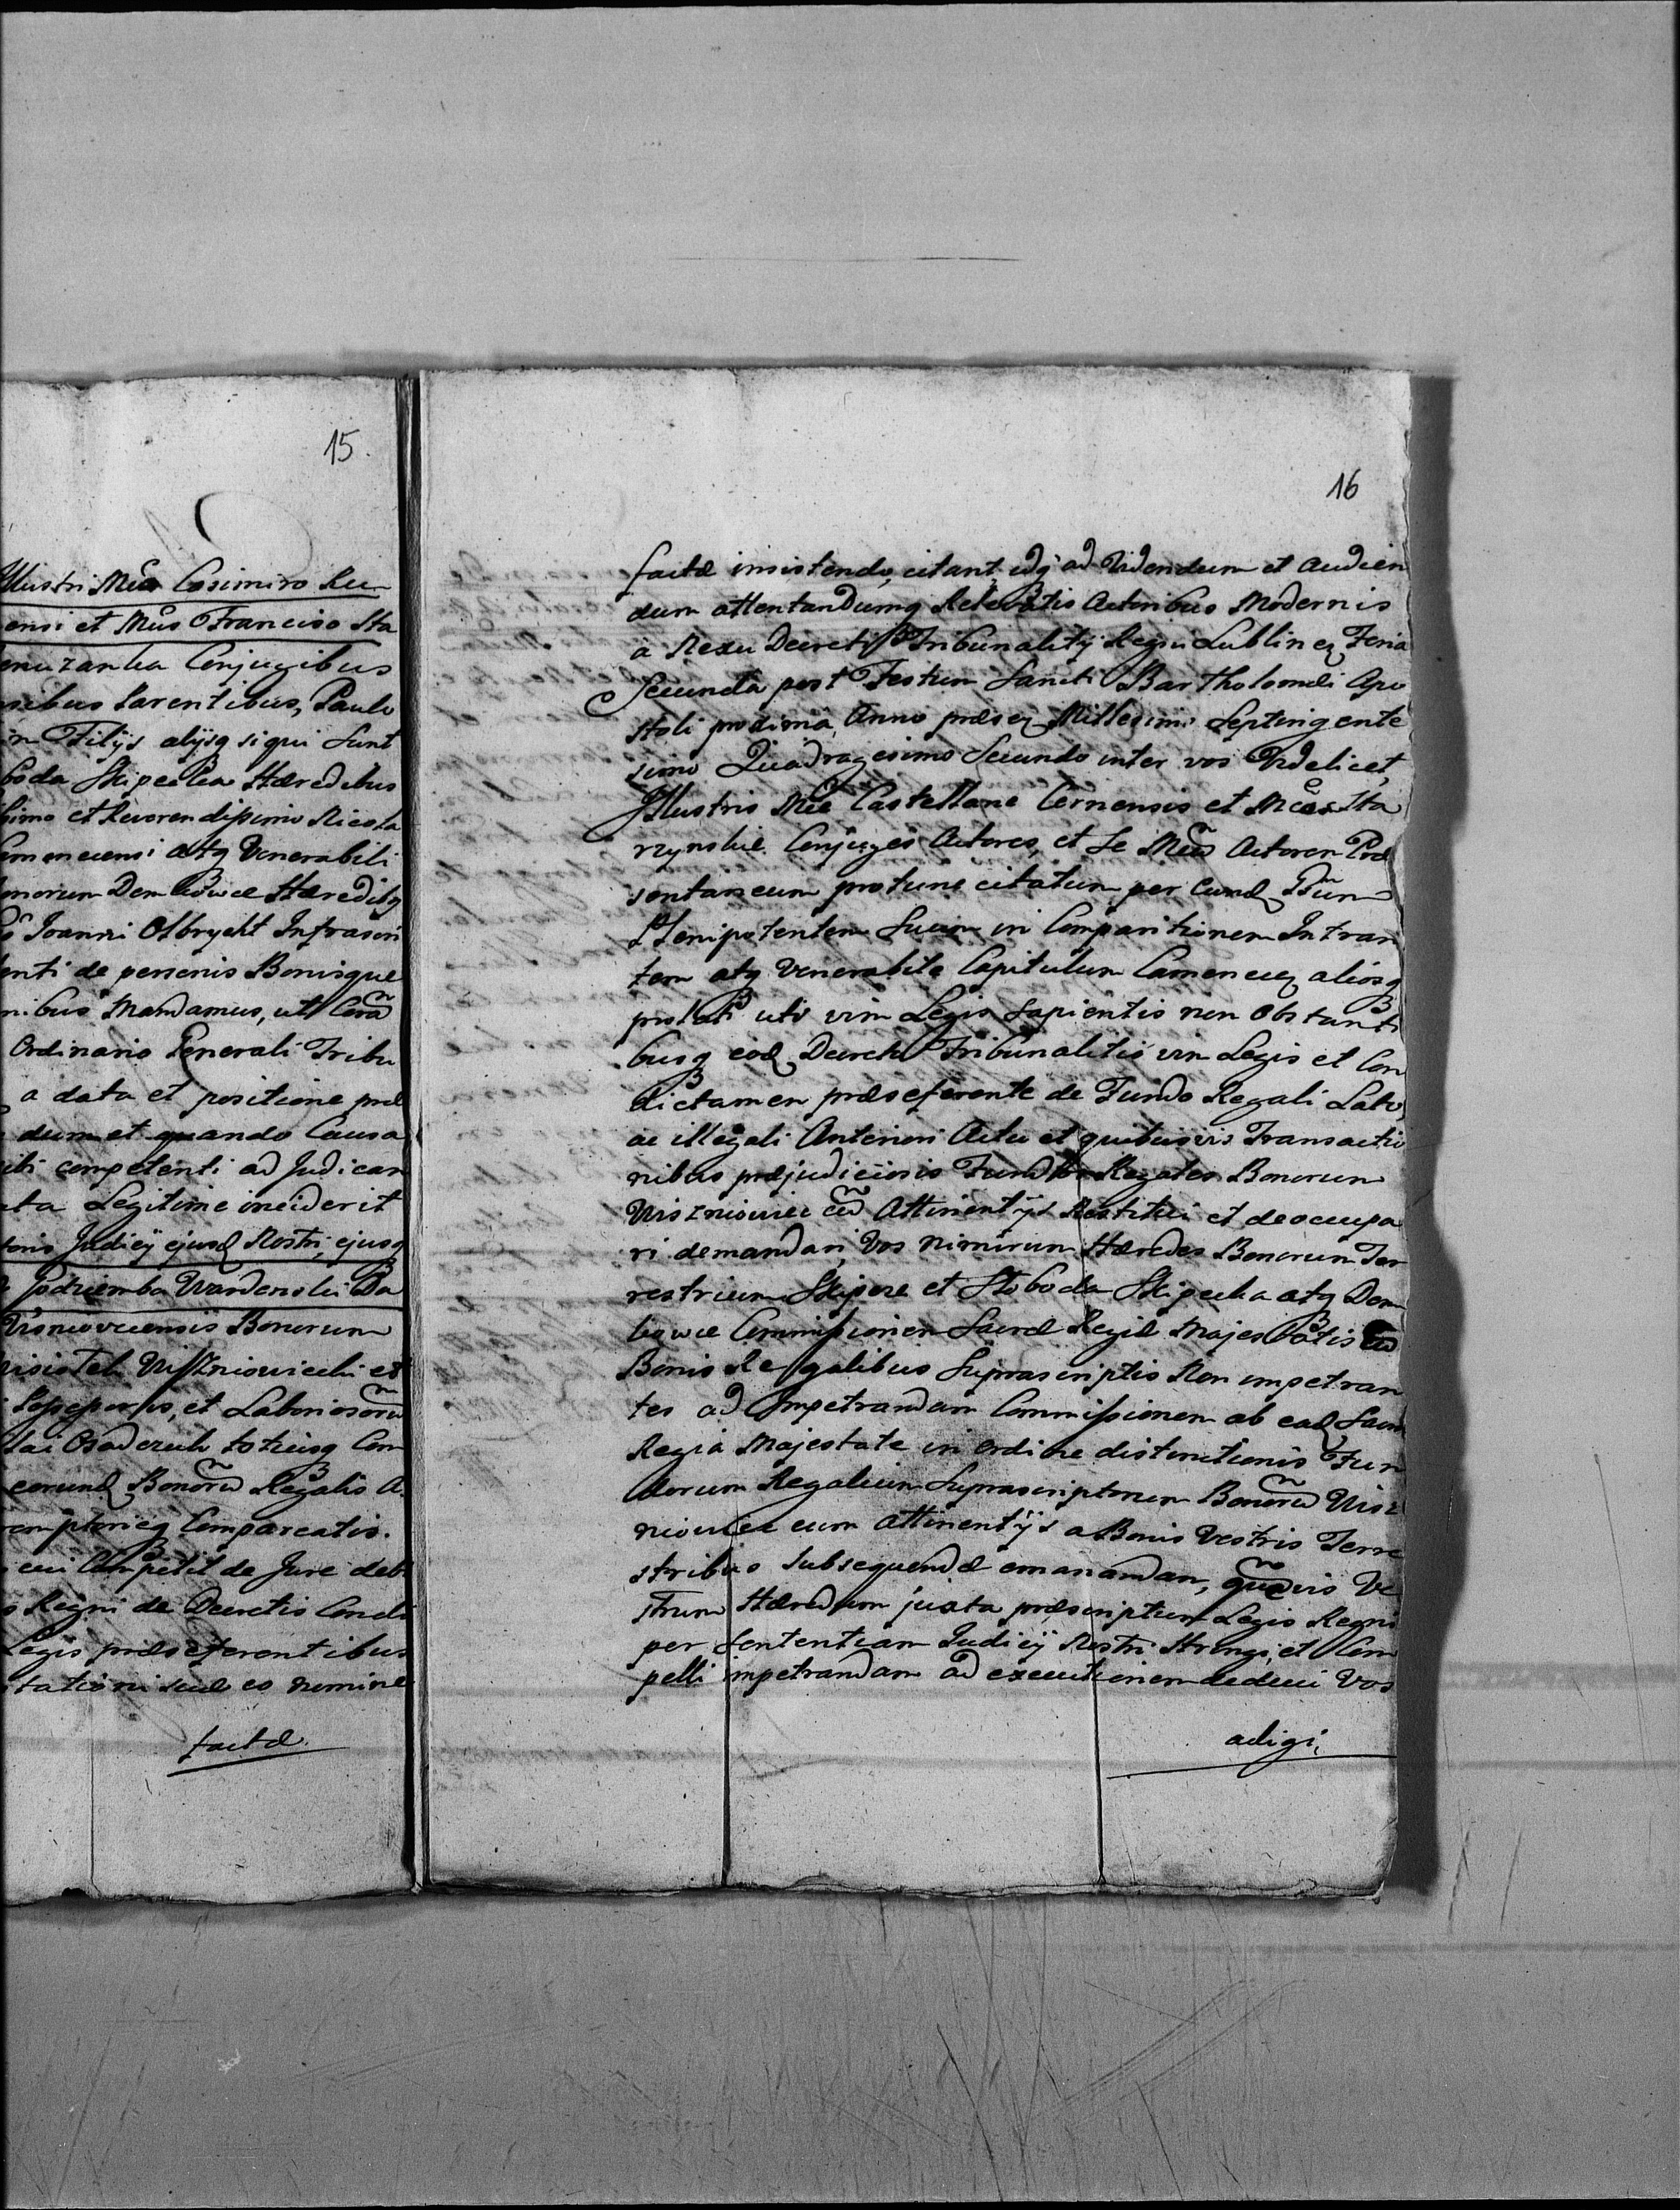 15.
Illustri Mco Casimiro Ru
ensi et Mcis Francisco Sta
Conjugibus
Parentibus, Paulo
Filijs alijsq siqui sunt
boda Skipecka Hæredibus
simo et Reverendissimo Nicola
Camenecensi atq Venerabili
onorum Dembowce Hæredibq
Joanni Olbrycht Infrascri
enti de personis Bonisque
nibus Mandamus, ut Corã
Ordinario Generali Tribu
a data et positione præ
dum et quando Causa
ibi competenti ad Judican
ta Legitime inciderit
toris Judicij ejusd Nostri, ejusq
Podziemba Wardenski Da
Visnioviecensis Bonorum
Wiszniowiecki et
et Laboriosorũ
totiusq Com
eorund Bonorũ Regalis A.
emptorieq Compareatis.
cui Competit de Jure deb
Regni de Decretis Condi
Legis præseferentibus
tationi suæ eo nomine
factæ
16
factæ insistendo, citant, idq ad Videndum et Audien
dum attentandumq Relevatis Actoribus Modernis
a Nexu Decreti Tribunalitij Regni Lublinen Feria
Secunda post Festum Sancti Bartholomæi Apo
stoli proxima, Anno præsen Millesimo Septingente
simo Quadragesimo Secundo inter vos Videlicet,
Illustris Mce Castellane Cernensis et Mcos Sta
rzynskie Conjuges Actores, et Se Mcũ Actorem Præ
sentaneum protunc citatum per Eund
Plenipotentem Suum in Comparitionem Intran
tem atq Venerabile Capitulum Camenecen aliosq
prolati uti vim Legis Sapientis non Obstanti
busq eod Decreto Tribunalitio vim Legis et Con
dictamen præseferente de Fundo Regali Lato
ac illegali Anteriori Actu et quibusvis Transactio
nibus præjudiciosis Fundos Regales Bonorum
Wiszniowiec cũ Attinentijs Restitui et deoccupa
ri demandari, Vos nimirum Hæredes Bonorum Ter
restrium Skipcze et Sloboda Skipecka atq Dem
bowce Commissionem Sacræ Regiæ Majestatis cũ
Bonis Regalibus Suprascriptis Non impetran
tes ad Impetrandam Commissionem ab ead Sacra
Regia Majestate in ordine distinctionis Fun
dorum Regalium Suprascriptorum Bonorũ Wisz
niowiec cum attinentijs a Bonis Vestris Terre
stribus subsequendæ emanandam, quãvis Ve
strum Hæredum juxta præscriptum Legis Regni
per Sententiam Judicij Nostri Stringi, et Com
pelli impetrandam ad executionem deduci Vos
adigi,